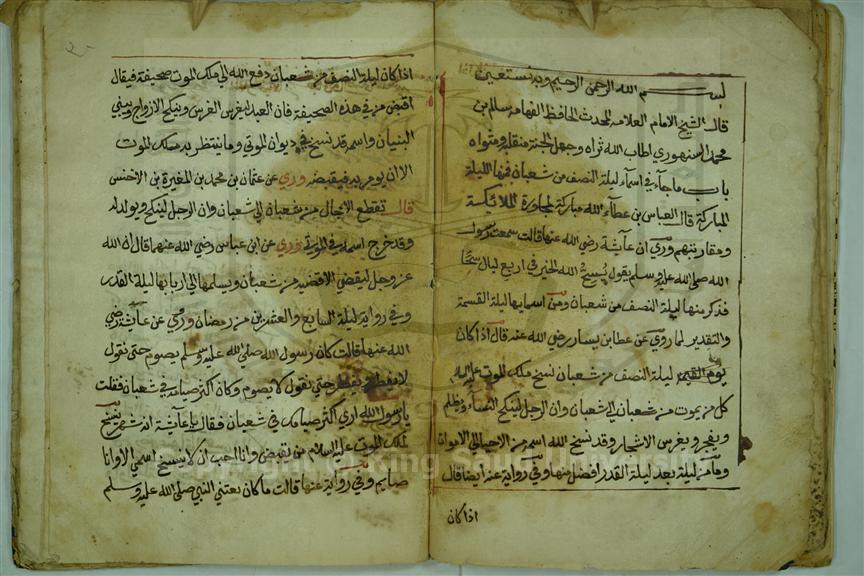 بسم الله الرحمن الرحيم وبه نستعين
قال الشيخ الامام العلامه المحدث الحافظ الفهامه سالم بن
محمد السنهوري اطاب الله ثراه وجعل الجنة منقلبه ومثواه
باب ما جاء في اسماء ليلة النصف من شعبان فمنها الليلة
المباركة قال العباس بن عطاء الله مباركة لمجاورة الملائكة
ومقاربتهم وروي ان عائشة رضي الله عنها قالت سمعت رسول
الله صلى الله عليه وسلم يقول يسح الله الخير في اربع ليال سحا
فذكر منها ليلة النصف من شعبان ومن اسمايها ليلة القسمة
والتقدير لما روي عن عطا بن يسار رضي الله عنه قال اذا كان
ليلة النصف من شعبان نسخ ملك الموت عليه
كل من يموت من شعبان الى شعبان وان الرجل لينكح النساء ويظلم
ويفجر ويغرس الاشجار وقد نسخ الله اسمه من الاحيا الى الاموات
وما من ليلة بعد ليلة القدر افضل منها وفي رواية عنه ايضا قال
اذا كان
اذا كان ليلة النصف من شعبان دفع الله الى ملك الموت صحيفة فيقال
اقبض من في هذه الصحيفة فان العبد ليغرس الغرس وينكح الازواج ويبني
البنيان واسمه قد نسخ في ديوان الموتي وما ينتظر به ملك الموت
الا ان يومر به فيقبضه وروي عن عثمان بن محمد بن المغيرة بن الاخنس
قال تقطع الاجال من شعبان الى شعبان وان الرجل لينكح ويولد له
وقد خرج اسمه في الموتى وروي عن ابن عباس رضي الله عنهما قال ان الله
عز وجل ليقضي الاقضيه من شعبان ويسلمها الى اربابها ليلة القدر
وفي رواية ليلة السابع والعشرين من رمضان وروي عن عائشة رضي
الله عنها قالت كان رسول الله صلى الله عليه وسلم يصوم حتى نقول
لا يفطر ويفطر حتى نقول لا يصوم وكان اكثر صيامه في شعبان فقلت
يا رسول الله اري اكثر صيامك في شعبان فقال يا عائشة انه شهر ينسخ
لملك الموت عليه السلام من يقبض وانا احب ان لا ينسخ اسمي الا وانا
صايم وفي رواية عنها قالت ما كان النبي صلى الله عليه وسلم
King Saud University